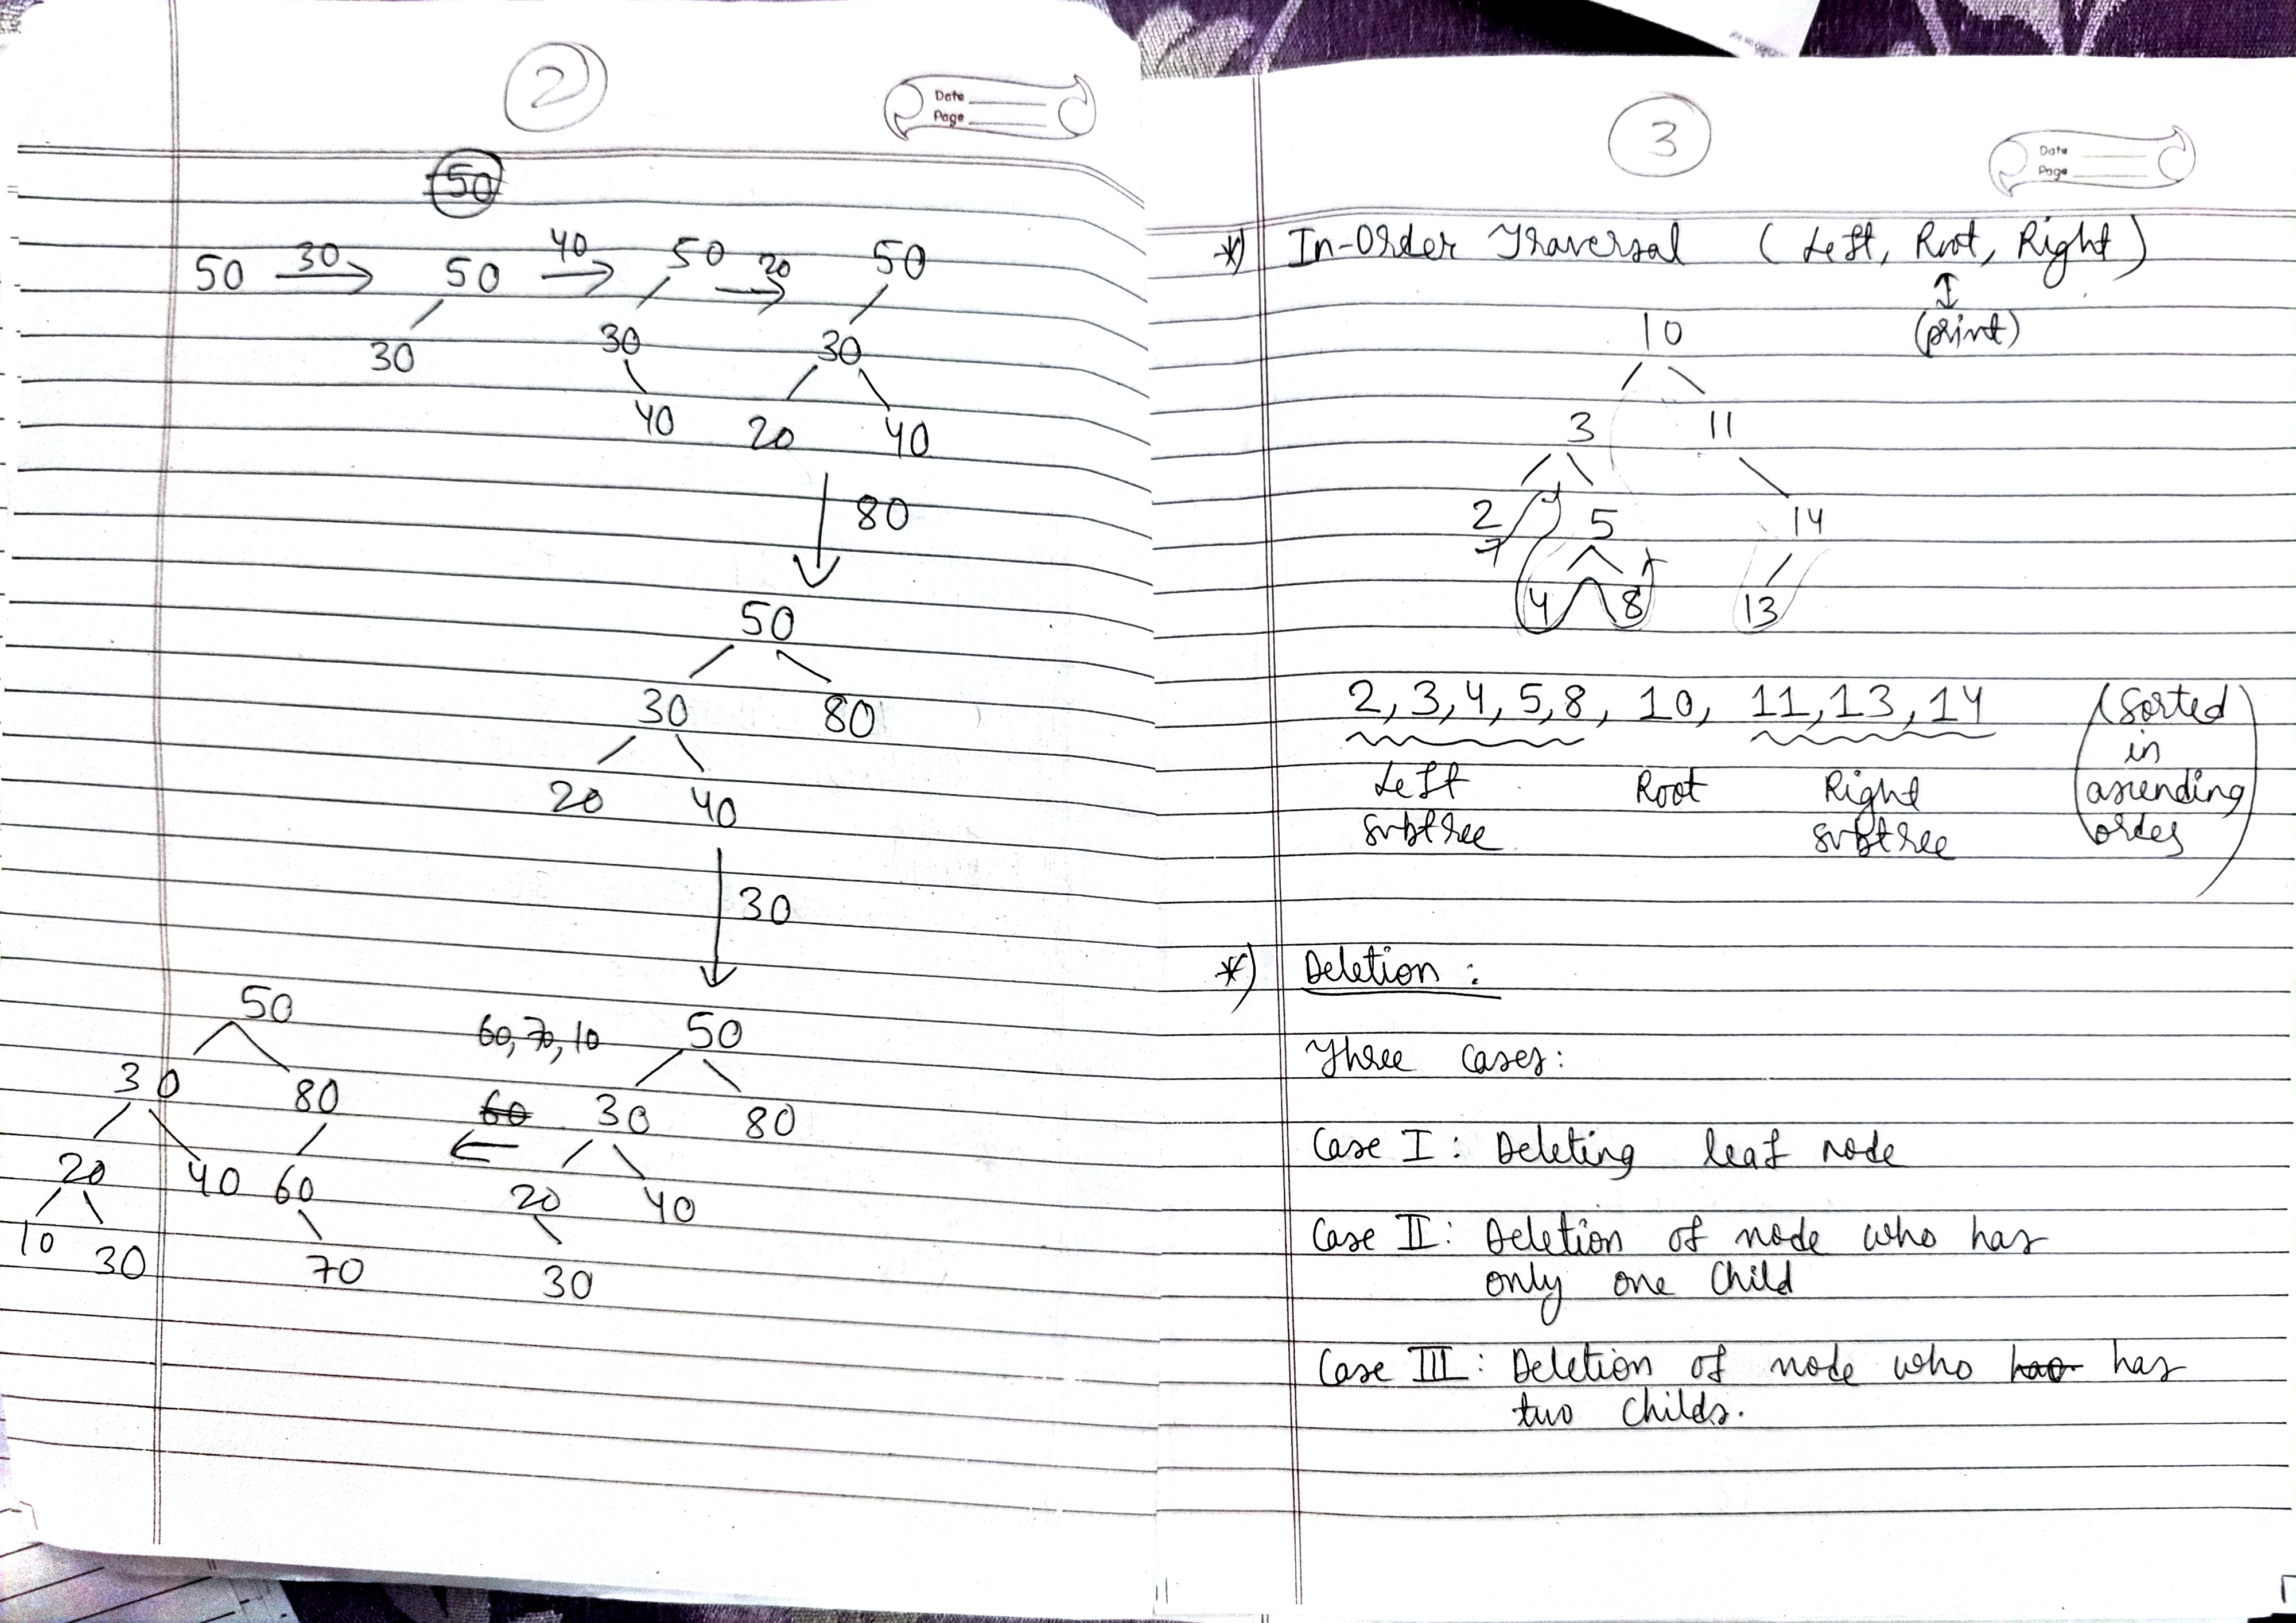 2
Date
Page
50
50 30 50 40 50 20 50
30 30 30
40 20 40
80
50
30 80
20 40
30
50 60, 70, 10 50
30 80 60 30 80
20 40 60 20 40
10 30 70 30
3
Date
Page
*) In-Order Traversal (Left, Root, Right)
10 (print)
3 11
2 5 14
4 8 13
2, 3, 4, 5, 8, 10, 11, 13, 14 (Sorted
in
Left Root Right ascending
subtree subtree order)
*) Deletion :
Three Cases:
Case I : Deleting leaf node
Case II : Deletion of node who has
only one Child
Case III : Deletion of node who has has
two Childs.